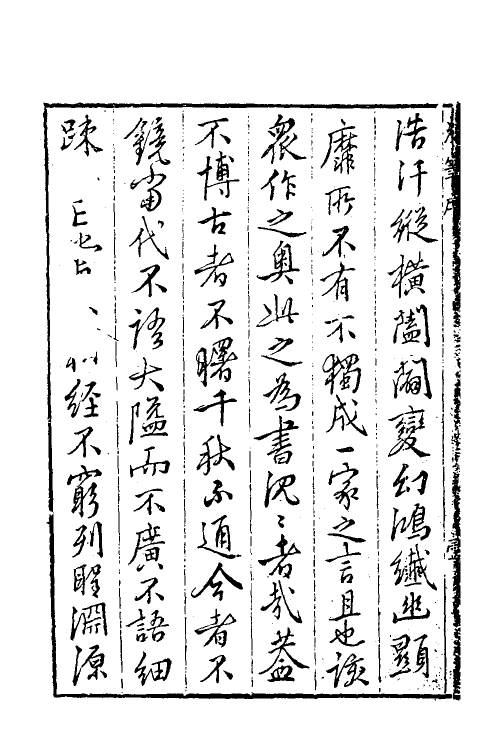 浩汗縱橫闔闢變幻鴻纖幽顯
靡所不有不獨成一家之言且也該
眾作之奧此之為書沉〻者哉蓋
不博古者不曙千秋不通今者不
鏡當代不語大隘而不廣不語細
疎 經不窮列 淵源